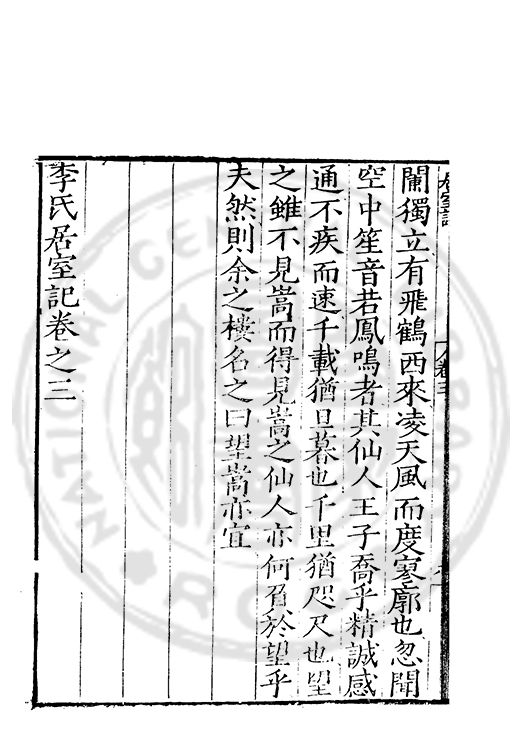 居室記
卷三
闌獨立有飛鶴西來凌天風而度寥廓也忽聞
空中笙音若鳳鳴者其仙人王子喬乎精誠感
通不疾而速千載猶旦暮也千里猶咫尺也望
之雖不見嵩而得見嵩之仙人亦何負於望乎
夫然則余之樓名之曰望嵩亦宜
李氏居室記卷之三